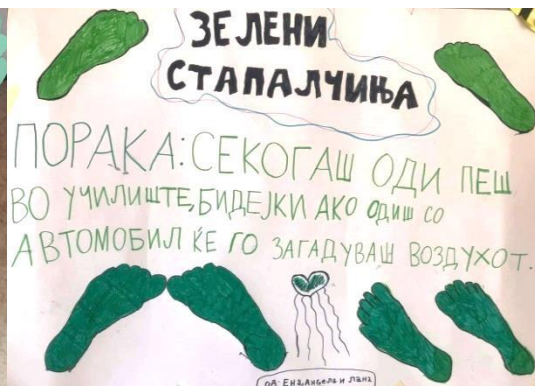 ЗЕЛЕНИ
СТАПАЛЧИЊА
ПОРАКА: СЕКОГАШ ОДИ ПЕШ
ВО УЧИЛИШТЕ, БИДЕЈКИ АКО ОДИШ СО
АВТОМОБИЛ ЌЕ ГО ЗАГАДУВАШ ВОЗДУХОТ.
ОД: ЕНА, АНГЕЛА И ЛАНА